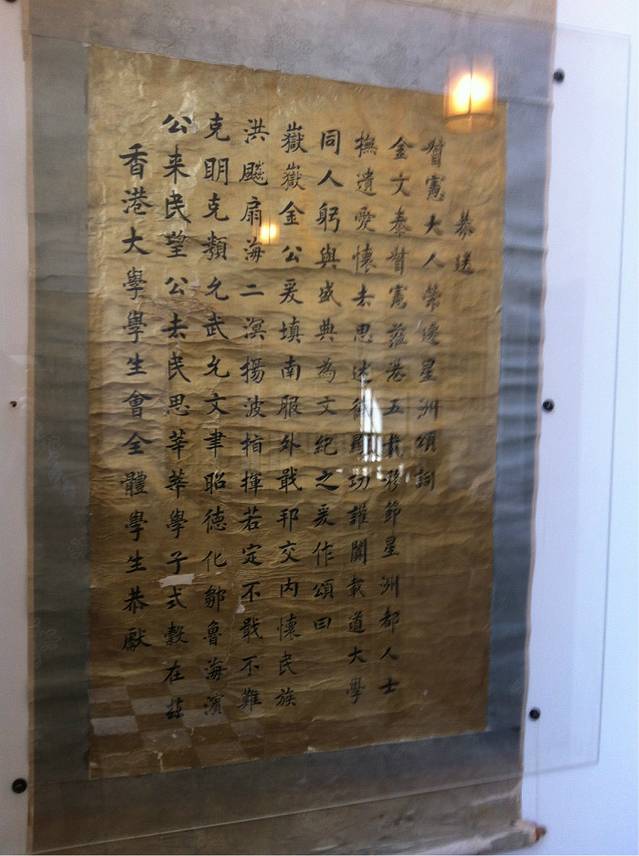 恭送
督憲大人榮遷星洲頌詞
金文泰督憲蒞港五載移節星洲都人士
撫遺愛懷去思述德功載道大學
同人躬與盛典為文紀之爰作頌曰
嶽嶽金公爰填南服外戢邦交内懷民族
洪飈扇海二溟揚波指揮若定不戢不難
克明克類允武允文聿昭德化鄒魯海濱
公来民望公去民思莘莘學子式穀在兹
香港大學學生會全體學生恭獻